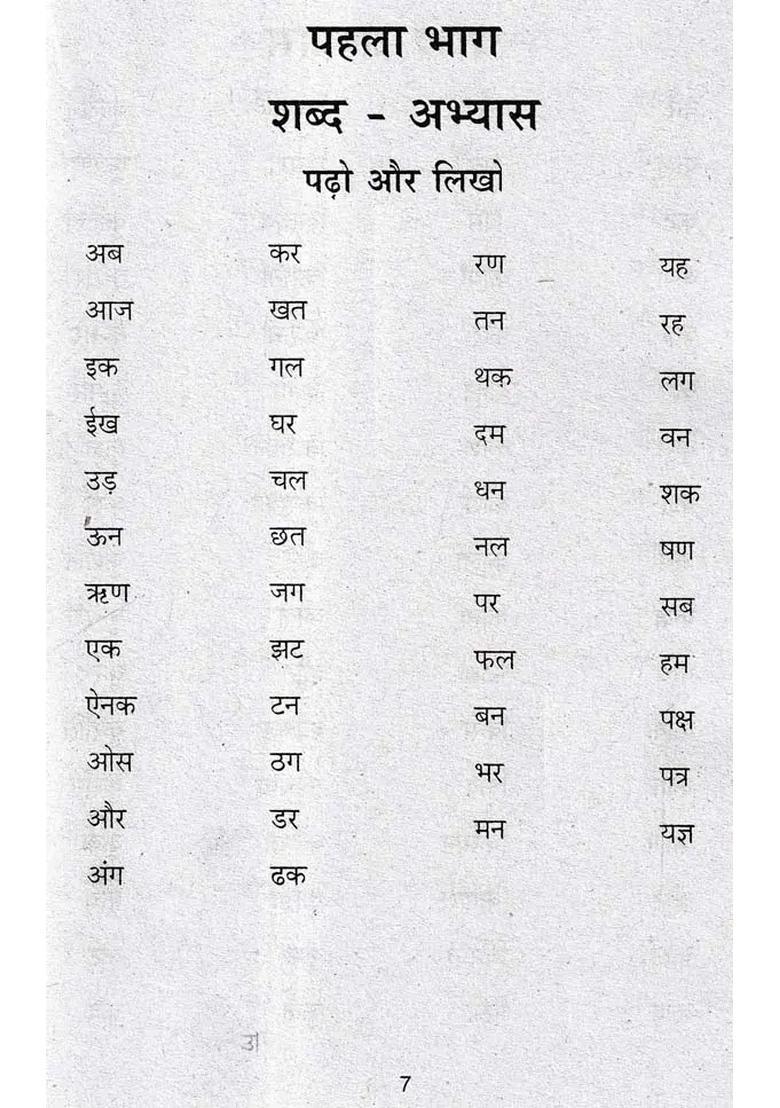 पहला भाग
शब्द - अभ्यास
पढ़ो और लिखो
अब कर रण यह
आज खत तन रह
इक गल थक लग
ईख घर दम वन
उड़ चल धन शक
ऊन छत नल षण
ऋण जग पर सब
एक झट फल हम
ऐनक टन बन पक्ष
ओस ठग भर पत्र
और डर मन यज्ञ
अंग ढक
7